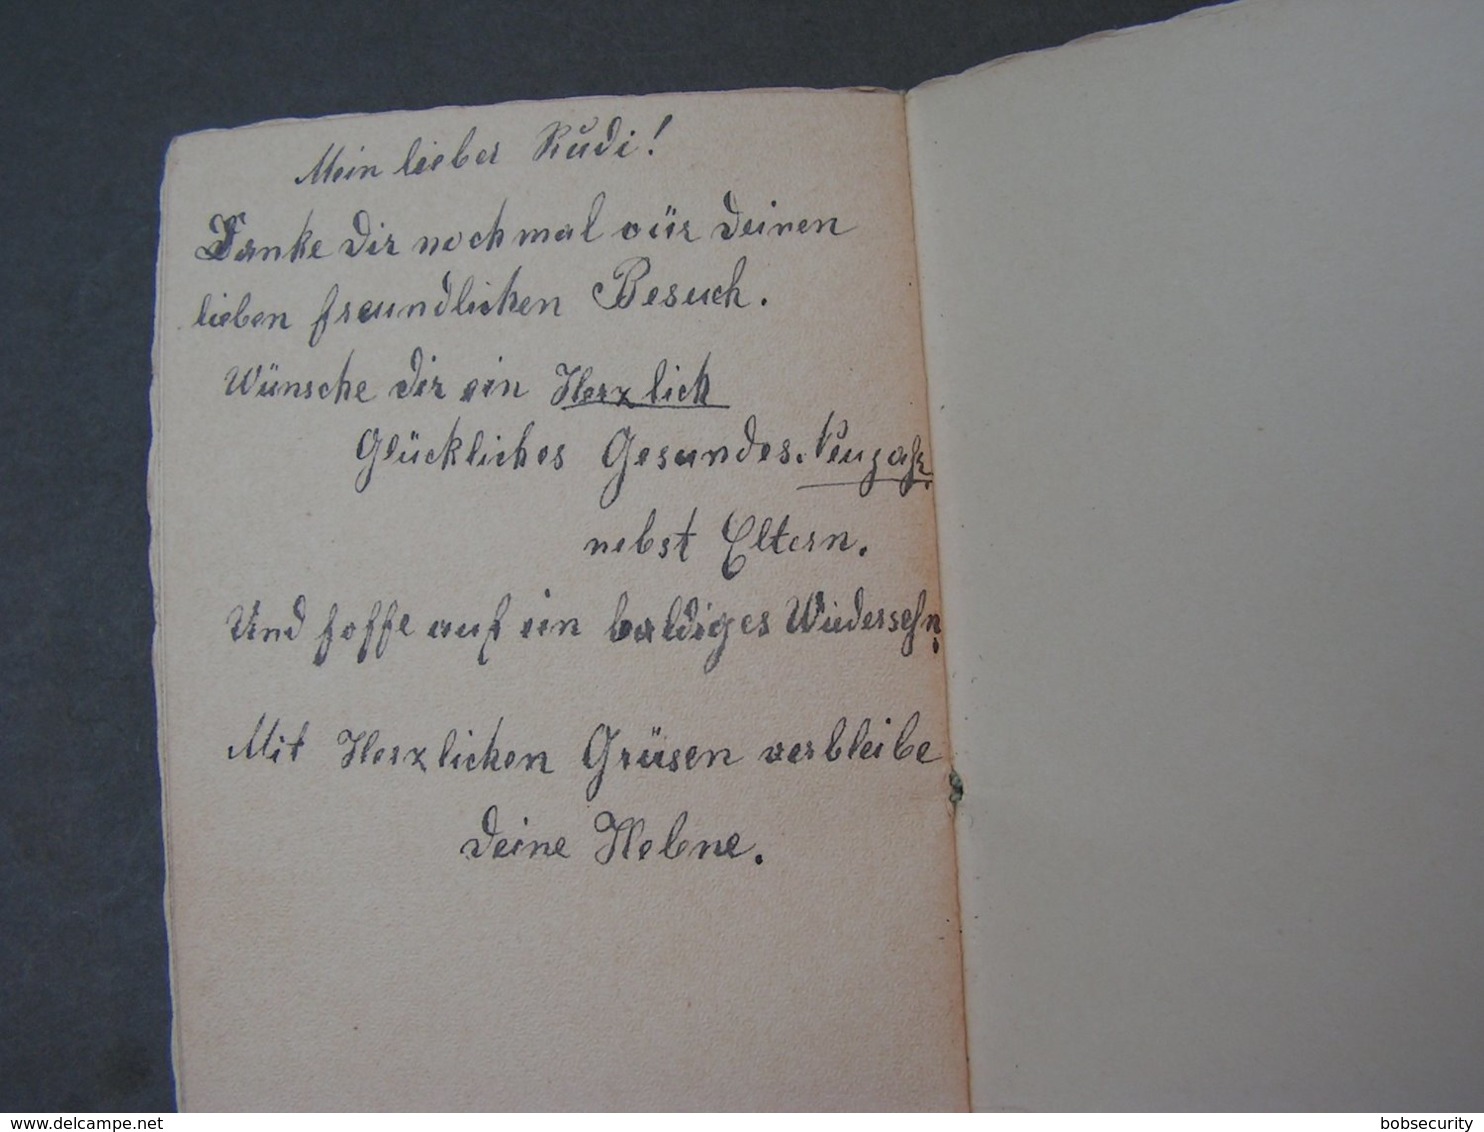 Mein lieber Rudi!
Danke Dir nochmal vür Deinen
lieben freundlichen Besuch.
Wünsche Dir ein Herzlich
Glückliches Gesundes. Neujahr.
nebst Eltern.
Und hoffe auf ein baldiges Wiedersehn.
Mit Herzlichen Grüsen verbleibe
Deine
bobsecurity